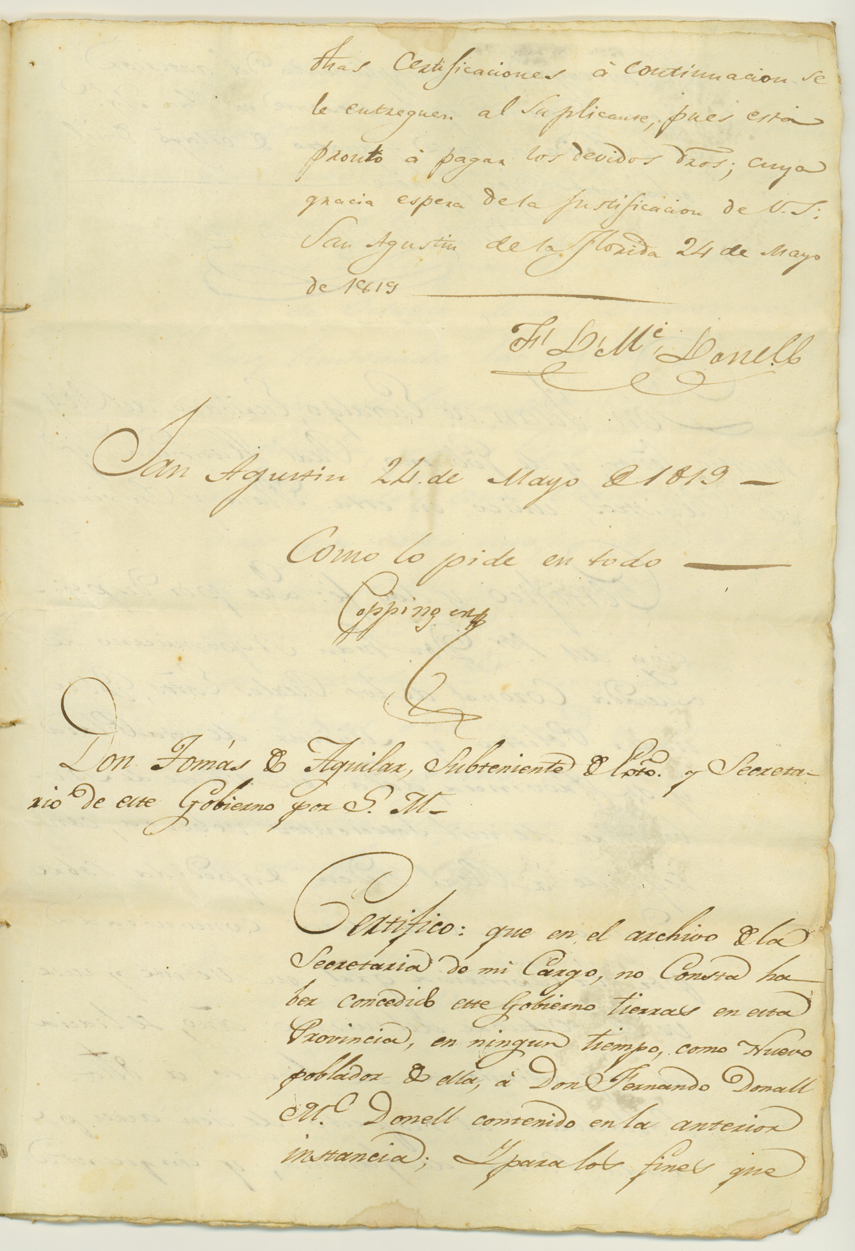 thas Certificaciones á continuacion se
le entreguen al Suplicante, pues está
pronto á pagar los devidos dros; cuya
gracia espera de la Justificacion de V.S:
San Agustin de la Florida 24 de Mayo
de 1819
Fd. Dl Mc. Donell
San Agustin 24 de Mayo de 1819 —
Como lo pide en todo —
Coppinger
Don Tomás de Aguilar, Subteniente de Exto. y Secreta-
rio de este Gobierno por S. M—
Certifico: que en el archivo de la
Secretaria de mi Cargo, no Consta ha-
ber concedido este Gobierno tierras en esta
Provincia, en ningun tiempo, como Nuevo
poblador de ella, á Don Fernando Donall
Mc. Donell contenido en la anterior
instancia; Y para los fines que